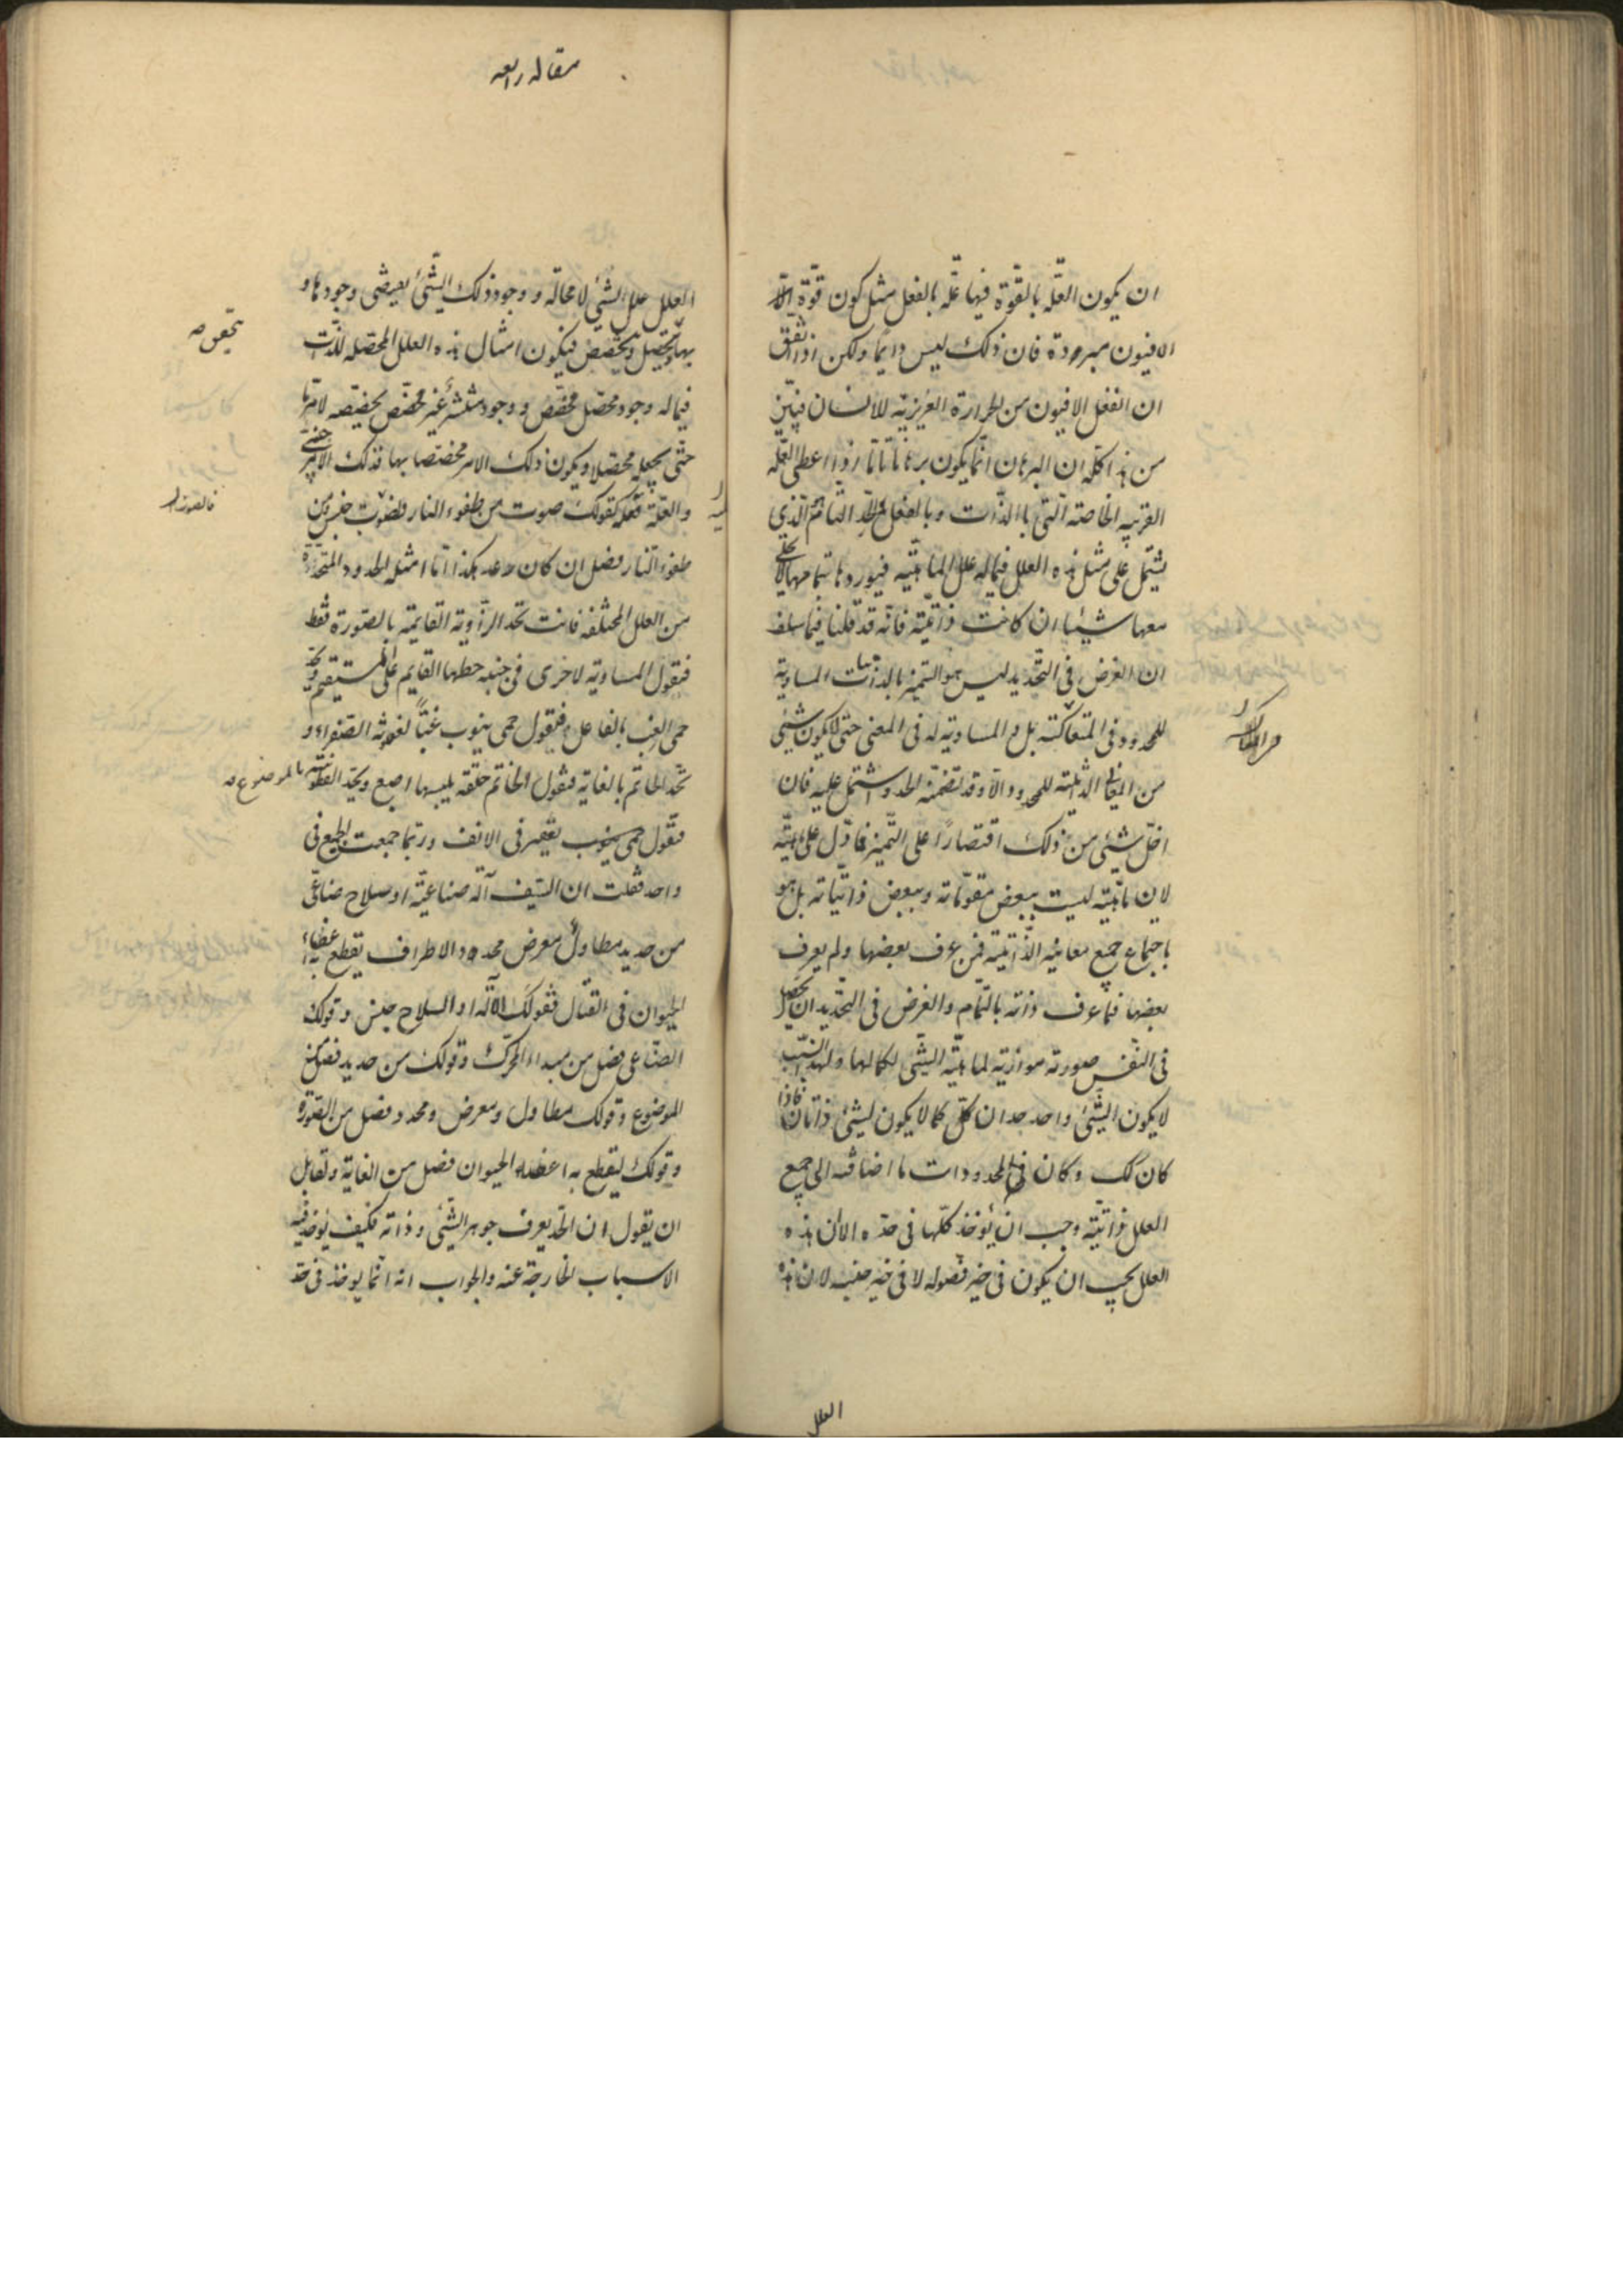 ان يكون العلّة بالقوّة فيها علّة بالفعل مثل كون قوّة
الافيون مبردة فان ذلك ليس دايما ولكن اذا اتفق
ان انفعل الافيون من الحرارة الغريزيّة للانسان فتبيّن
من هذا كله ان البرهان انّما يكون برهانا تامّا اذا اعطى العلّة
القريبه الخاصّة الّتى بالذّات وبالفعل والحدّ التّامّ الّذى
يشتمل على مثل هذه العلل فيما له علل الماهيّة فيوردها بتمامها لا يخلى
معها شيئا ان كانت ذاتيّة فانّه قد قلنا فيما سلف
ان الغرض فى التّحديد ليس هو التميز بالذاتيات المساوية
للمحدود فى المتعاكسة بل و المساوية له فى المعنى حتى لا يكون شئ
من المعانى الذاتية للمحدود الّا وقد تضمّنه الحد و اشتمل عليه فان
اخلّ بشئ من ذلك اقتصارًا على التّميز فما دلّ على ماهيّة
لان ماهيّته ليست ببعض مقوّماته وببعض ذاتيّاته بل هو
باجتماع جميع معانيه الذّاتيّة فمن عرف بعضها ولم يعرف
بعضها فما عرف ذاته بالتّمام والغرض فى التّحديد ان يحصل
فى النّفس صورته موازية لماهيّة الشّئ لكمالها ولهذا السّبب
لا يكون الشّئ واحد حدان كما لا يكون لشئ ذاتان فاذا
كان كك وكان فى المحدودات ما اضافته الى جميع
العلل ذاتيّة وجب ان يؤخذ كلّها فى حدّه الا ان هذه
العلل يجب ان يكون فى حيّز فصوله لا فى حيّز جنسه لان هذه
العلل
مقاله رابعه
العلل علل الشئ لا محالة و وجود ذلك الشّئ يقتضى وجودها و
بها يتحصّل ويتخصّص فيكون امثال هذه العلل المحصّله للذّات
فيما له وجود محصّل مخصّص و وجود منتشر غير مخصّص يخصّصه لامرها
حتّى يجعله محصّلا ويكون ذلك الامر مختصا بها فذلك الامر جنس
والعلّة فصله كقولك صوت من طفوء النار فصوت جنس ومن
طفوء النّار فصل ان كان رعد هكذا امّا امثلة الحدود المتّخذة
من العلل المختلفه فانت تحد الزّاوية القايمة بالصّورة فقط
فتقول المساوية لاخرى فى جنبه خطها القايم على المستقيم وتحد
حمى الغب بالفاعل فتقول حمى ينوب غبًّا لعفونة الصّفراء و
تحد الخاتم بالغاية فتقول الخاتم حلقة يلبسها اصبع وتحد الفطوسة بالموضوع
فتقول تقعير فى الانف وربّما جمعت الجميع فى
واحد فقلت ان السّيف آلة صناعيّة او سلاح صناعى
من حديد مطاول معرض محدود الاطراف يقطع به اعضاء
الحيوان فى القتال فقولك الآلة او السلاح جنس وقولك
الصّناعى فصل من مبداء المحرّك وقولك من حديد فصل من
الموضوع وقولك مطاول ومعرض ومحدد فصل من الصّورة
وقولك ليقطع به اعضاء الحيوان فصل من الغاية ولقايل
ان يقول ان الحدّ يعرف جوهر الشّئ وذاته فكيف يؤخذ فيه
الاسباب الخارجة عنه والجواب انه انّما يوخذ فى حدّ